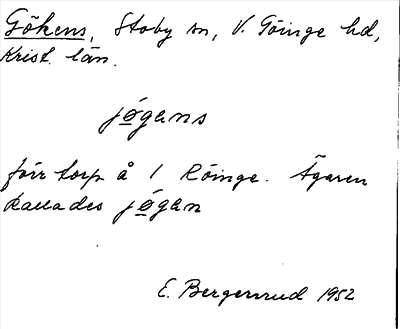 Gökens, Stoby sn, V. Göinge hd,
Krist. län.
jøgans
förr torp å 1 Röinge. Ägaren
kallades jøgan
E. Bergenrud 1952